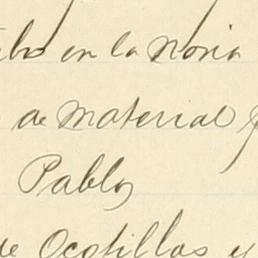 en la Noria
de material
Pablo
de Ocotillos y